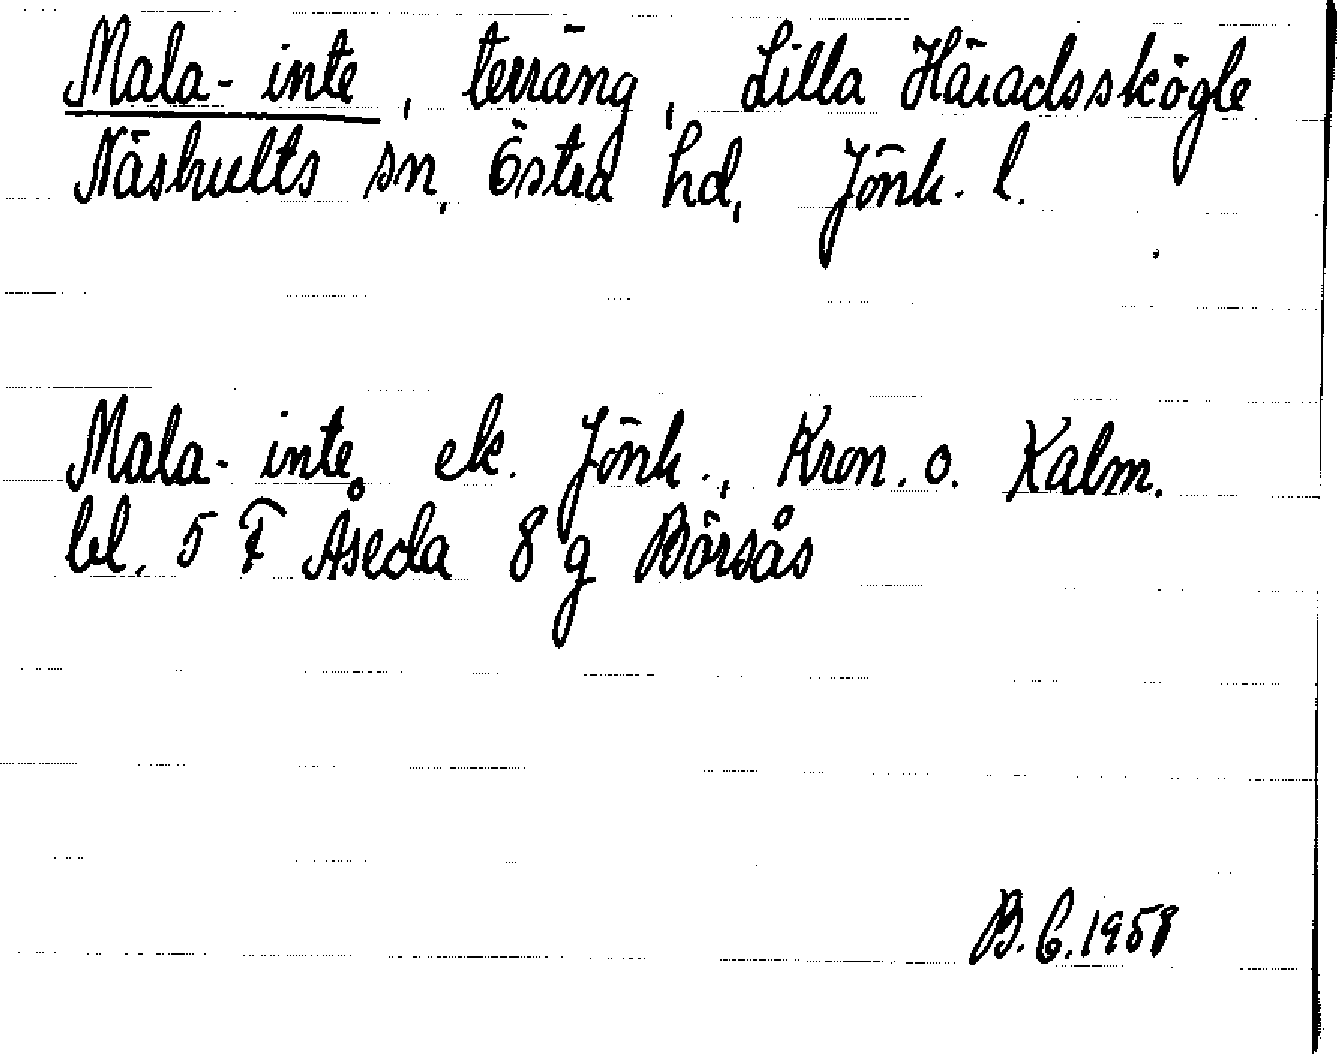 Mala-inte, terräng, Lilla Häradsskögle
Näshults sn, Östra hd, Jönk. l.
Mala-inte, ek. Jönk., Kron. o. Kalm.
bl. 5 F Åseda 8 g Börsås
B.C.1958